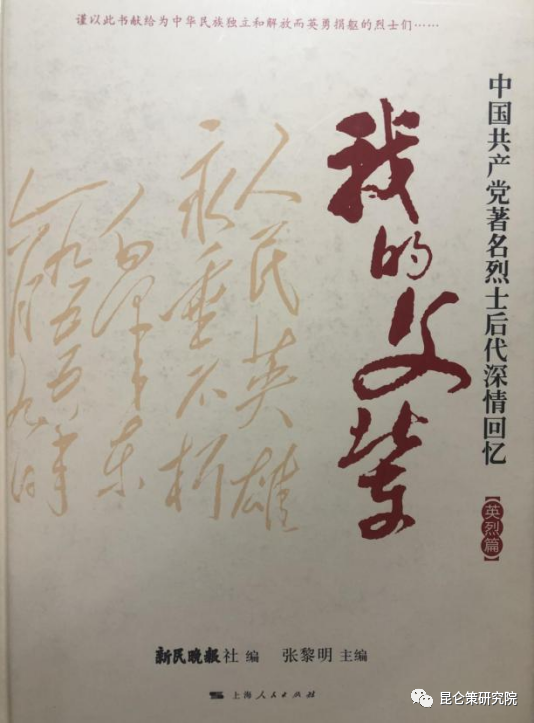 谨以此书献给为中华民族独立和解放而英勇捐躯的烈士们……
中国共产党著名烈士后代深情回忆
【英烈篇】
我的父辈
人民英雄
永垂不朽
毛泽东
一九五五年
新民晚报社 编 张黎明 主编
上海人民出版社
昆仑策研究院